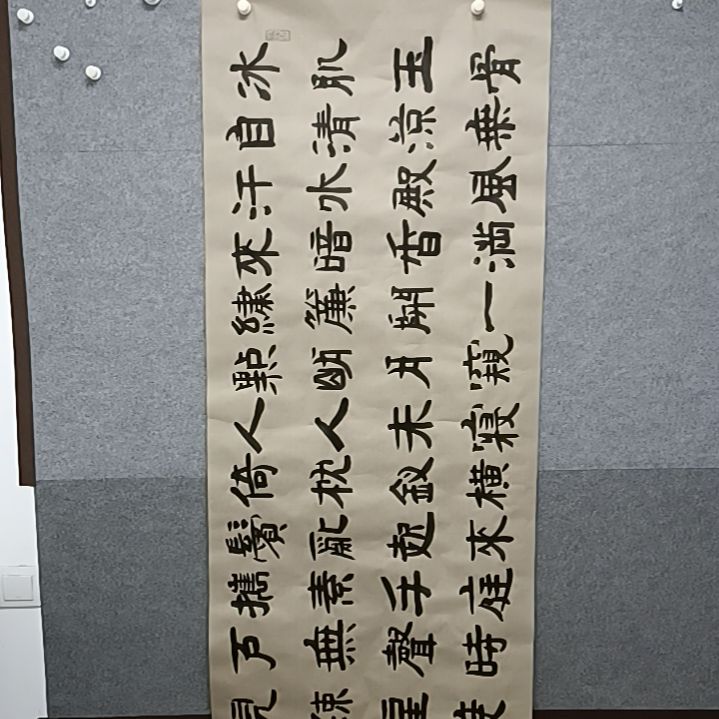 冰肌玉骨
自清涼無
汗水殿風
來暗香滿
繡簾開一
點朙月窺
人人未寢
倚枕釵橫
鬢亂起來
攜素手庭
戶無聲時
見疎